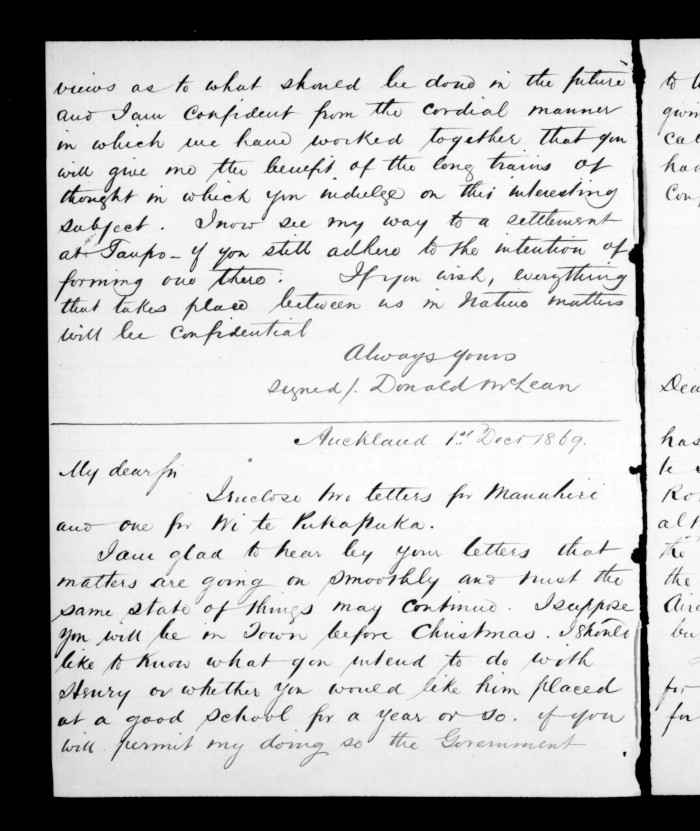 views as to what should be done in the future
and I am confident from the cordial manner
in which we have worked together that you
will give me the benefit of the long trains of
thought in which you indulge on this interesting
subject. I now see my way to a settlement
at Taupo - if you still adhere to the intention of
forming one there. If you wish, everything
that takes place between us in Native matters
will be confidential
Always yours
signed/. Donald McLean
Auckland 1st Decr 1869.
My dear Sir
I enclose two letters for Manuhiri
and one for Wi te Pukapuka.
I am glad to hear by your letters that
matters are going on smoothly and trust the
same state of things may continue. I suppose
you will be in Town before Christmas. I should
like to know what you intend to do with
Henry or whether you would like him placed
at a good school for a year or so. if you
will permit my doing so the Government
to
Dea
has
the
the
for
for